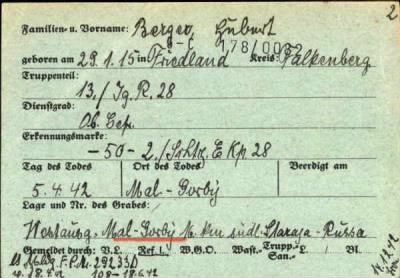 2
Familien- u. Vorname: Berger, Hubert
178/0032
geboren am 29.1.15 in Friedland Kreis: Falkenberg
Truppenteil:
13./Jg.R.28
Dienstgrad:
Ob.Gefr.
Erkennungsmarke:
-50- 2./Schtz.E Kp 28
Tag des Todes Ort des Todes Beerdigt am
5.4.42 Mal-Gorby
Lage und Nr. des Grabes:
Westausg. Mal-Gorby 16 km südl. Staraja-Russa
Gemeldet durch: V.L. Ref. L. W.G.O. Wast.- Trupp. San.- L./ Bl.
F.P.Nr. 29233D
108-18.6.42